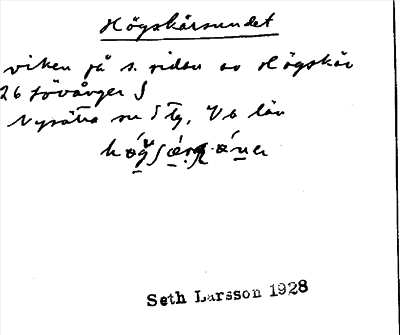 Högskärsundet
viken på s. sidan av Högskär
26 Sövånger S
Nysätra sn Stg, Vb län
Seth Larsson 1928